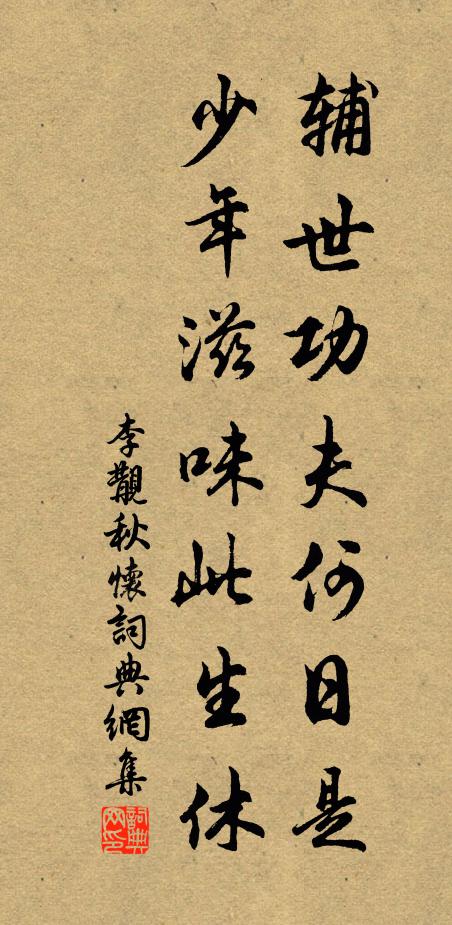 辅世功夫何日是
少年滋味此生休
李觀秋懷詞典網集
詞典网印